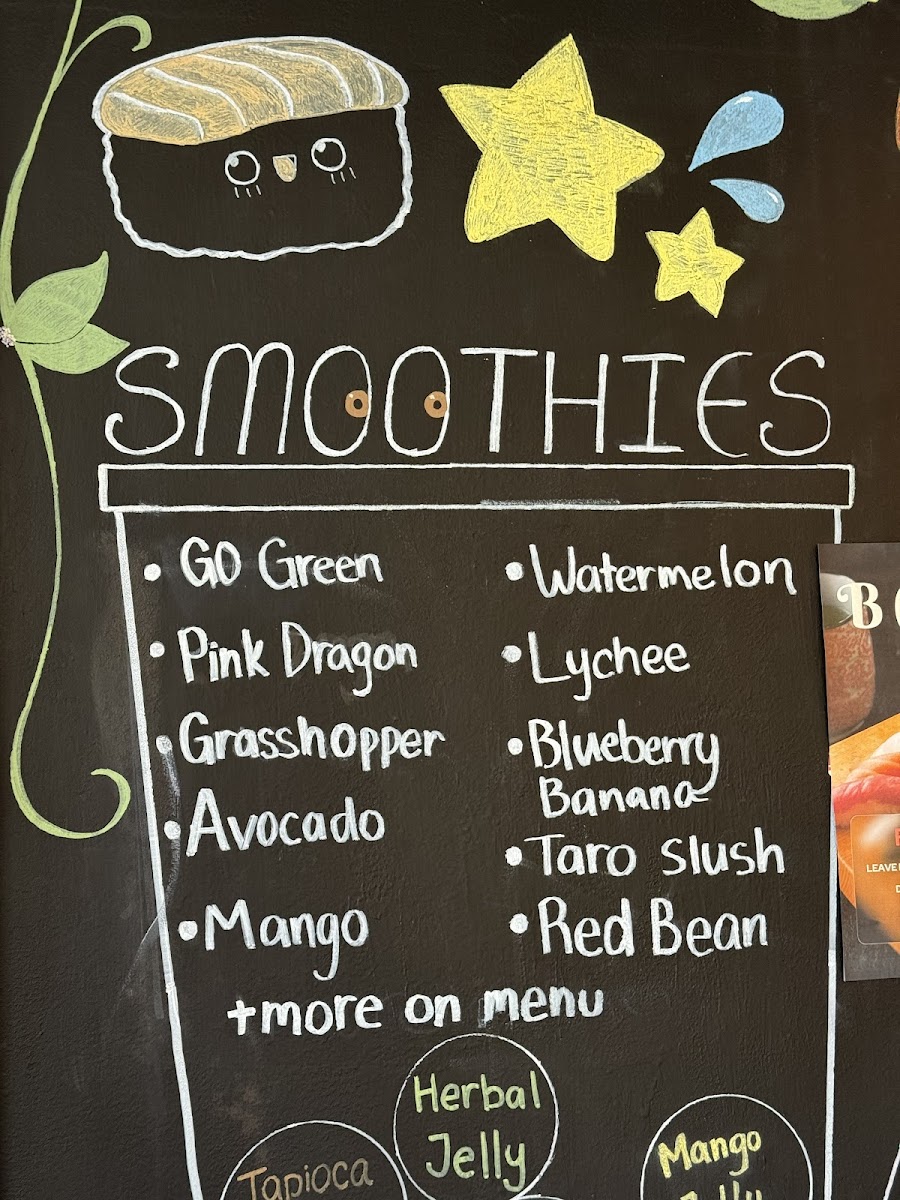 SMOOTHIES
• GO Green
• Pink Dragon
• Grasshopper
• Avocado
• Mango
• Watermelon
• Lychee
• Blueberry
Banana
• Taro slush
• Red Bean
+more on menu
Herbal
Jelly
Tapioca
Mango
Jelly
B
LEAVE